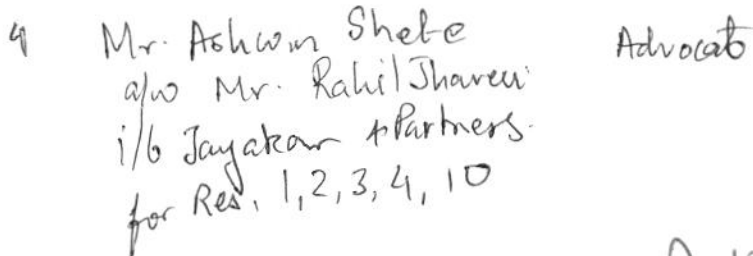 4 Mr. Ashwin Shete Advocate
a/w Mr. Rahil Jhaveri
i/b Jayakar & Partners.
for Res. 1, 2, 3, 4, 10